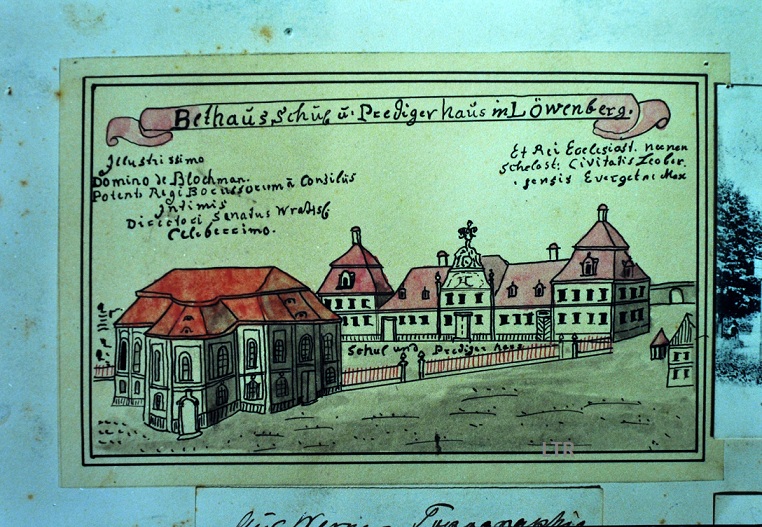 Bethaus Schul u. Prediger haus in Löwenberg.
Illustrissimo
Domino de Blochman.
Potent. Regi Consiliis
Intimis
Directori Senatus Wratisl
Celeberrimo.
Et Rei Ecclesiast. necnon
Scholast. Civitatis Leober
gensis Evergetae Max
Schul und Prediger haus
LTR
Topographie